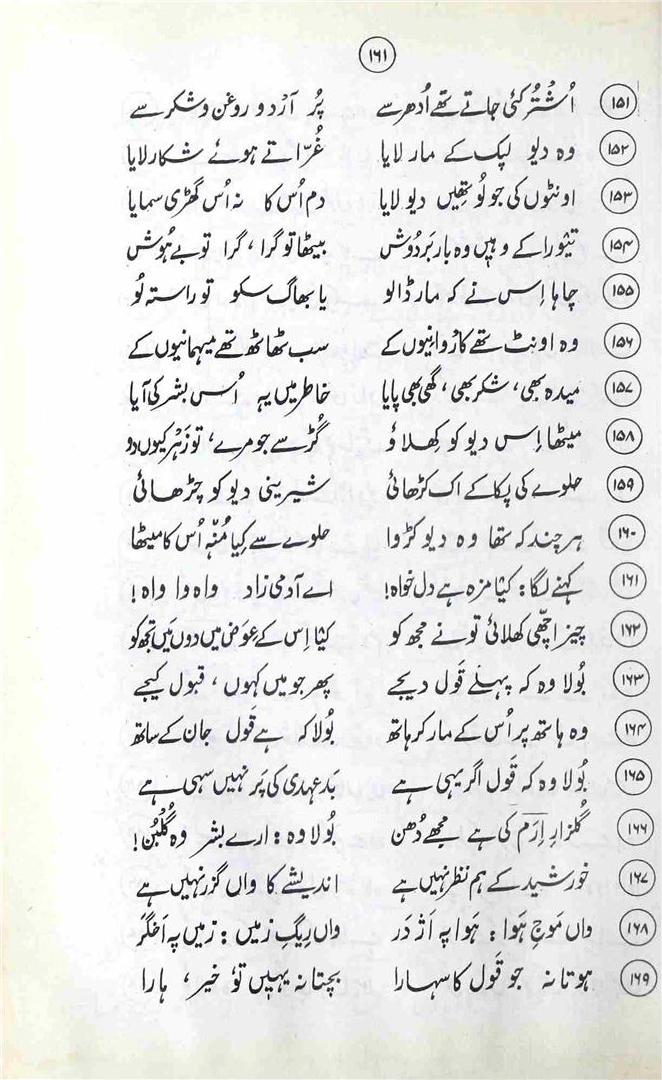 ۱۶۱
۱۵۱ اُشْتُر کئی جاتے تھے اُدھر سے پُر آرْد و روغن و شکر سے
۱۵۲ وہ دیو لپک کے مار لایا غُرّاتے ہوئے شکار لایا
۱۵۳ اونٹوں کی جو لُوتھیں دیو لایا دم اُس کا نہ اُس گھڑی سمایا
۱۵۴ تیورا کے وہیں وہ بار بَر دُوش بیٹھا تو گرا، گرا تو بے ہُوش
۱۵۵ چاہا اِس نے کہ مار ڈالو یا بھاگ سکو تو راستہ لُو
۱۵۶ وہ اونٹ تھے کارْوانیوں کے سب ٹھاٹھ تھے میہمانیوں کے
۱۵۷ میدہ بھی، شکر بھی، گھی بھی پایا خاطر میں یہ اُس بشر کی آیا
۱۵۸ میٹھا اِس دیو کو کھلاؤ گُڑ سے جو مرے، تو زَہْر کیوں دو
۱۵۹ حلوے کی پکا کے اک کڑھائی شیرینی دیو کو چڑھائی
۱۶۰ ہر چند کہ تھا وہ دیو کڑوا حلوے سے کِیا مُنْہ اُس کا میٹھا
۱۶۱ کہنے لگا: کیا مزہ ہے دل خواہ! اے آدمی زاد واہ وا واہ!
۱۶۲ چیز اچّھی کھلائی تو نے مجھ کو کیا اِس کے عوَض میں دوں مَیں تجھ کو
۱۶۳ بُولا وہ کہ پہلے قَول دیجے پھر جو میں کہوں، قبول کیجے
۱۶۴ وہ ہاتھ پر اُس کے مار کر ہاتھ بُولا کہ ہے قَول جان کے ساتھ
۱۶۵ بُولا وہ کہ قَول اگر یہی ہے بَد عہدی کی پَر نہیں سہی ہے
۱۶۶ گُلزارِ اِرَم کی ہے مجھے دُھن بُولا وہ: ارے بشر وہ گُلبُن!
۱۶۷ خورشید کے ہم نظر نہیں ہے اندیشے کا واں گزر نہیں ہے
۱۶۸ واں مَوجِ ہَوا: ہَوا پہ اَژدَر واں ریگِ زمیں: زمیں پہ اَخگر
۱۶۹ ہوتا نہ جو قَول کا سہارا بچتا نہ یہیں تُو خیر، ہارا